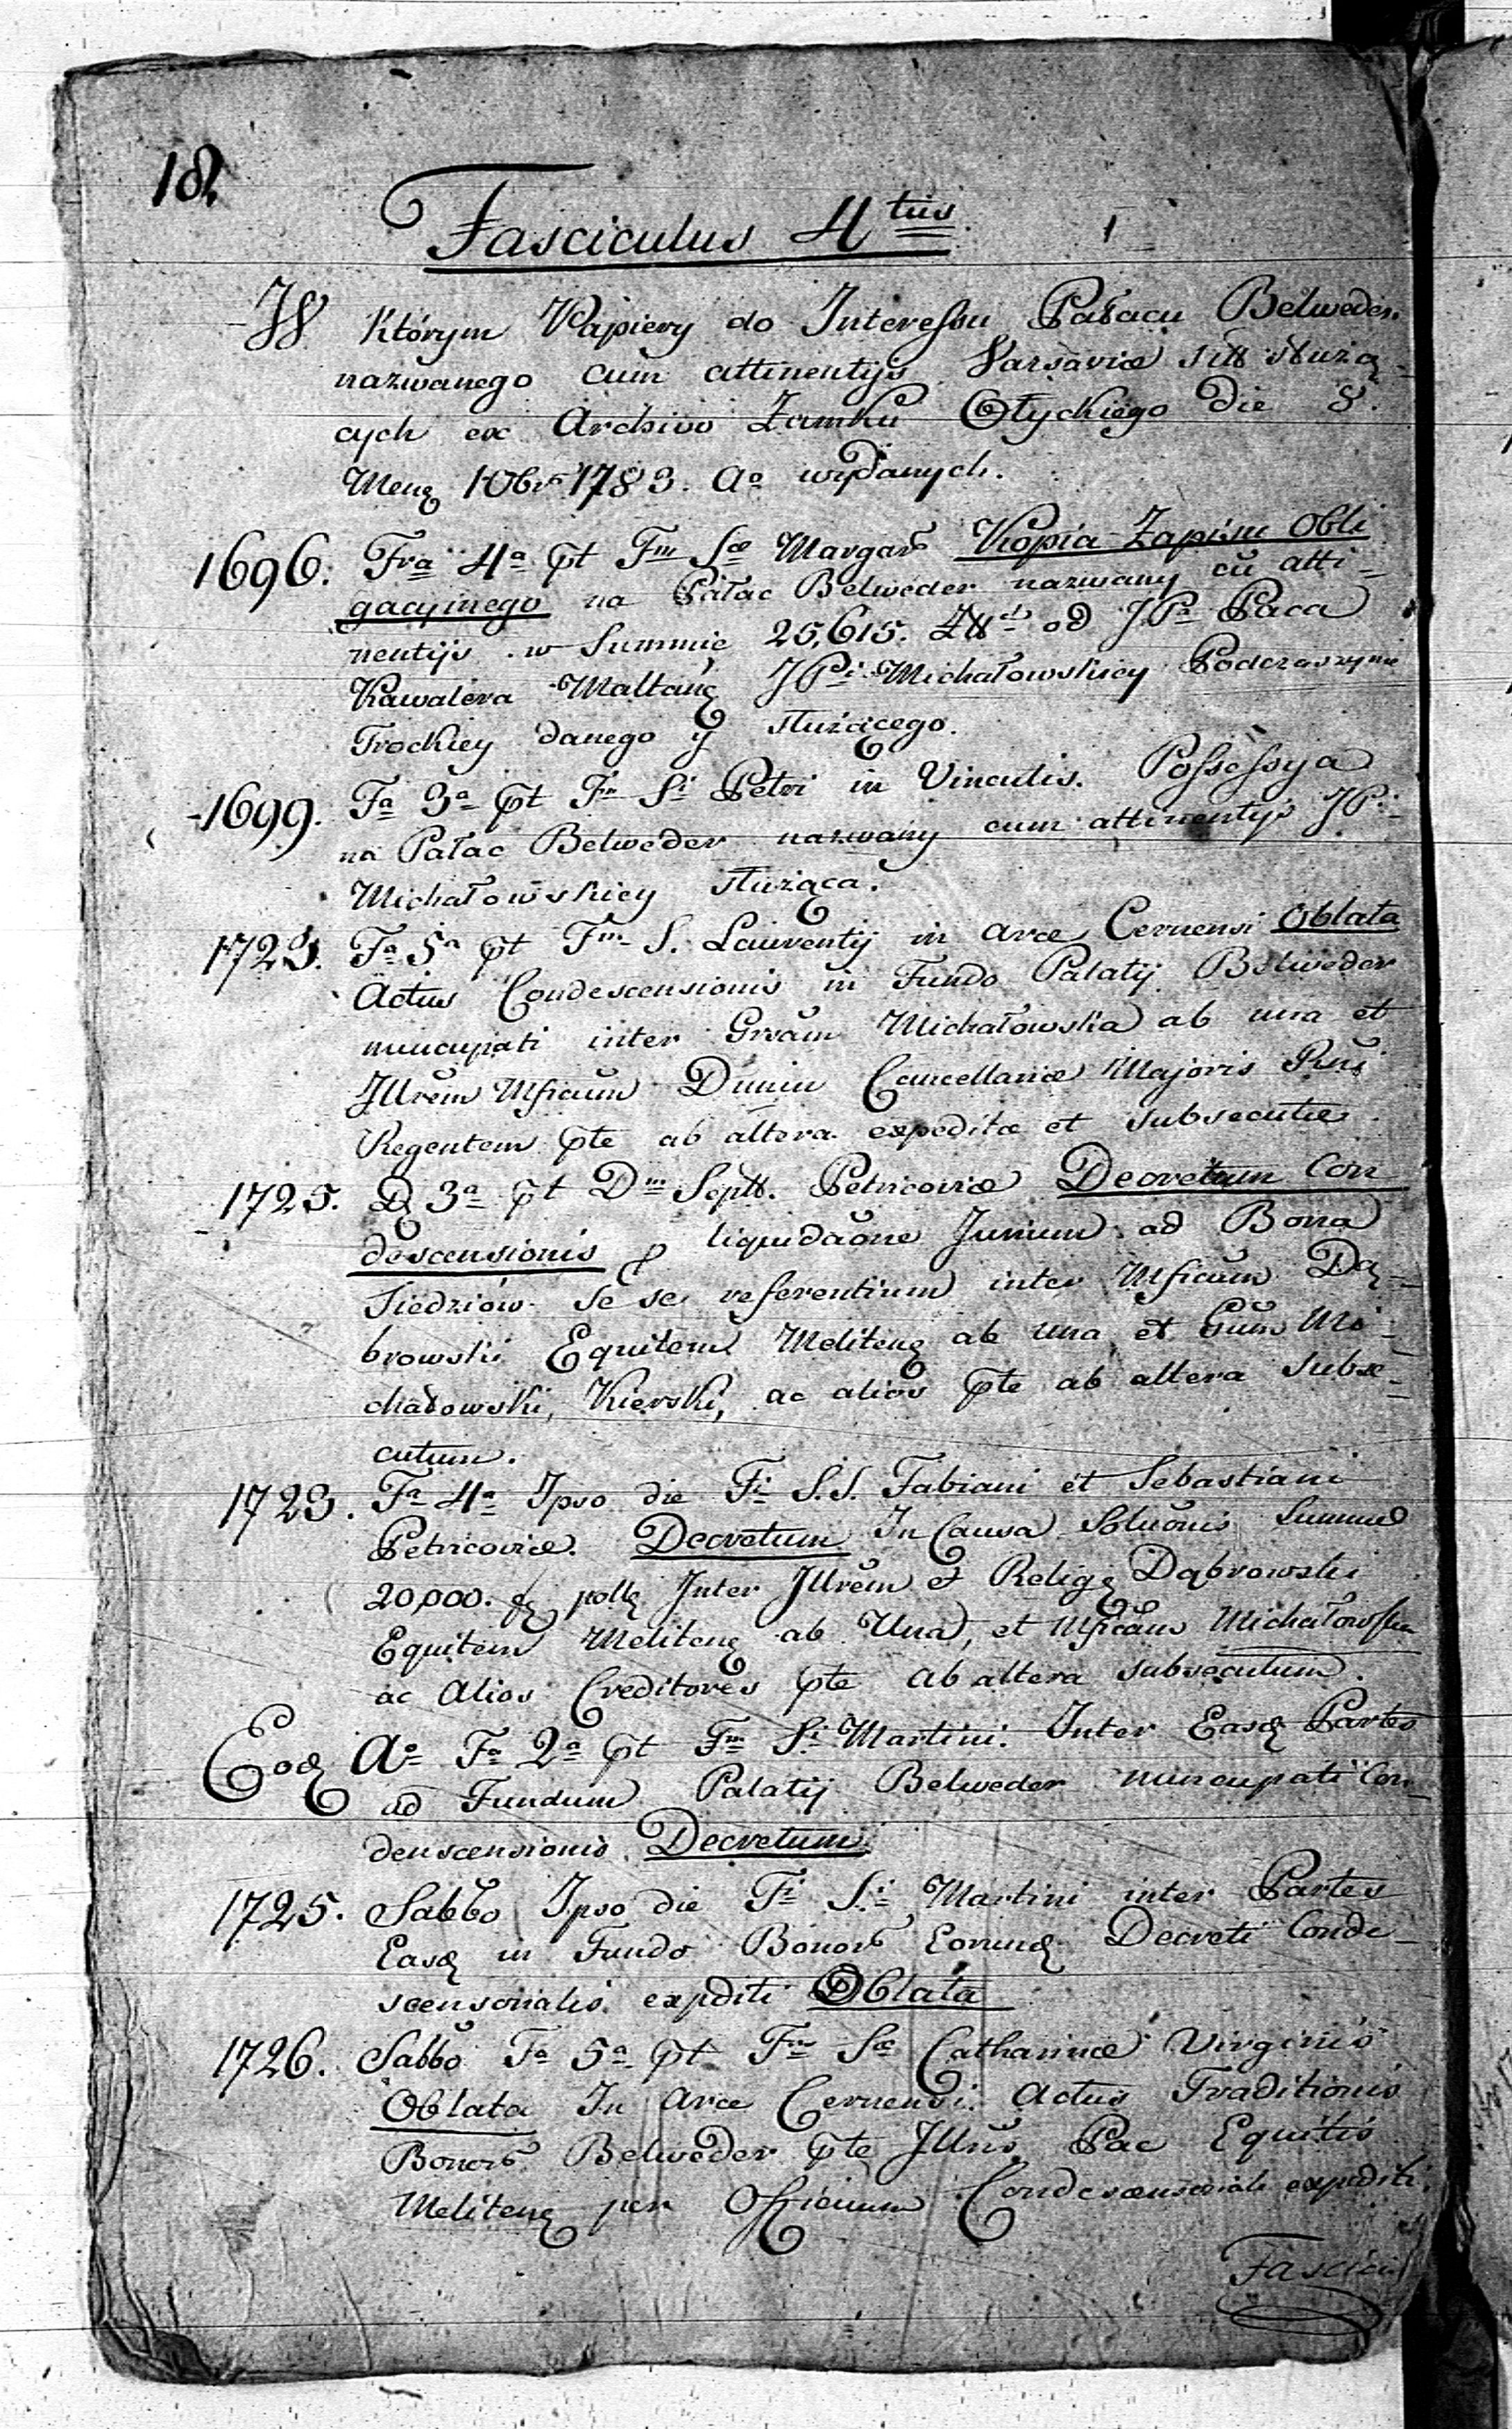 182
Fasciculus 4tus
W którym Papiery do Interessu Pałacu Belweder
nazwanego cum attinentijs Varsaviæ sitt służą-
cych ex Archivo Zamku Ołyckiego Die 8.
Mens 10brs 1783. Ao wydanych.
1696. Fra 4a pt Fm Sæ Margar Kopia Zapisu Obli
gacyinego na Pałac Belweder nazwany cū atti-
nentijs w Summie 25,615. od JPa Paca
Kawalera Maltań JPi Michałowskiey Podczaszyne
Trockiey danego y służącego.
1699. Fa 3a pt Fm Si Petri in Vinculis. Possessya
na Pałac Belweder nazwany cum attinentijs JPi
Michałowskiey służąca.
1723. Fa 5a pt Fm S. Laurentij in arce Cernensi Oblata
Actus Condescensionis in Fundo Palatij Belweder
nuncupati inter Grsam Michałowska ab una et
Jllrem Mficum Dunin Cancellariæ Majoris Rni
Regentem pte ab altera expeditæ et subsecutæ
1725. D 3a pt Dm Septt. Petricoviæ Decretum Con
descensionis p liquidaōne Jurium ad Bona
Siedziow se se referentium inter Mficum Dą-
browski Equitem Meliteng ab una et Gūm Mi-
chałowski, Kierski, ac alios pte ab altera subse-
cutum.
1723. Fa 4a Ipso die Fi S.S. Fabiani et Sebastiani
Petricoviæ. Decretum In Causa Soluōnis Summæ
20,000. poll Inter Jllrem et Relig Dąbrowski
Equitem Meliteng ab Una, et Mficam Michałowska
ac Alios Creditores pte ab altera subsecutum.
Eod Ao Fa 2a pt Fm Si Martini. Inter Easd Partes
ad Fundum Palatij Belweder nuncupati Con-
denscensionis Decretum.
1725. Sabbo Ipso die Fi Si Martini inter Partes
Easd in Fundo Bonor Eorund Decreti Conde-
scensorialis expditi Oblata
1726. Sabbo Fa 5a pt Fm Sæ Catharinæ Virginis
Oblata In Arce Cernensi Actus Traditionis
Bonor Belweder pte Jllris Pac Equitis
Meliteng per Officium Condescensoriale expediti.
Fascicul